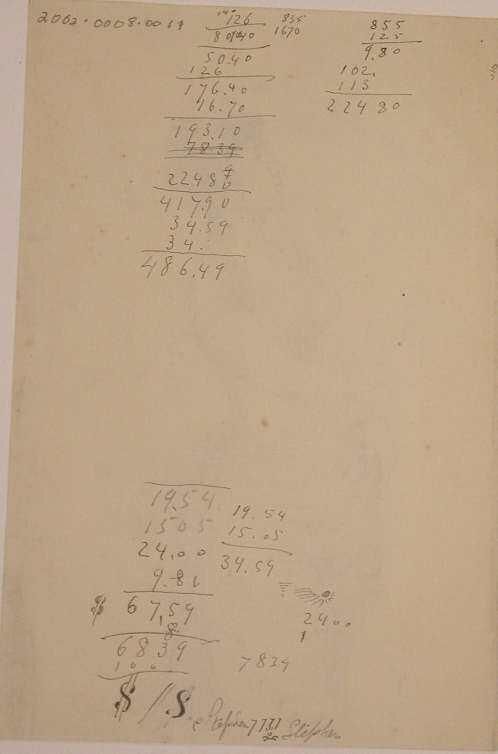 2002.0008.0011
126
835
1670
50.40
126
176.40
16.70
193.10
78.39
2248
417.90
34.59
34.
486.49
855
125
9.80
102.
113
22480
19.54
1505
24.00
9.80
$ 67,59
8
6839
100
19.54
15.05
34.59
2400
7834
$ / S